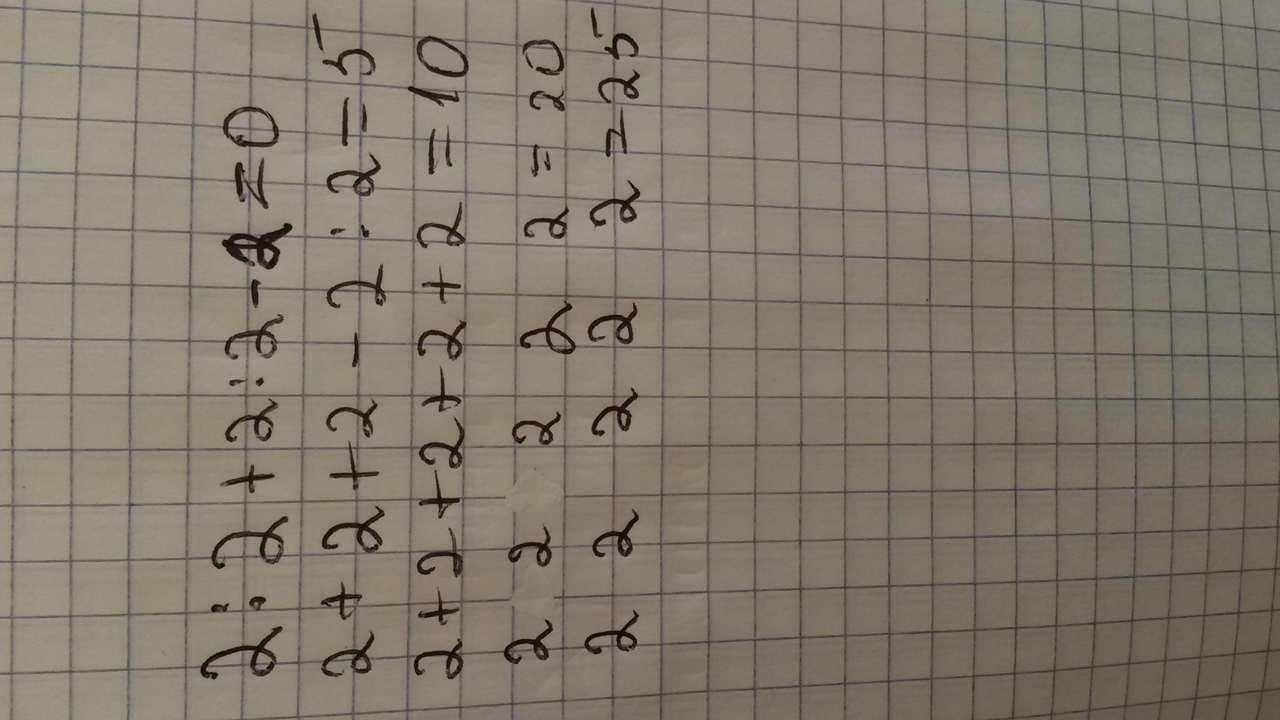 2:2+2:2-2=0
2+2+2-2:2=5
2+2+2+2+2=10
2 2 2 2 2 = 20
2 2 2 2 2 = 25